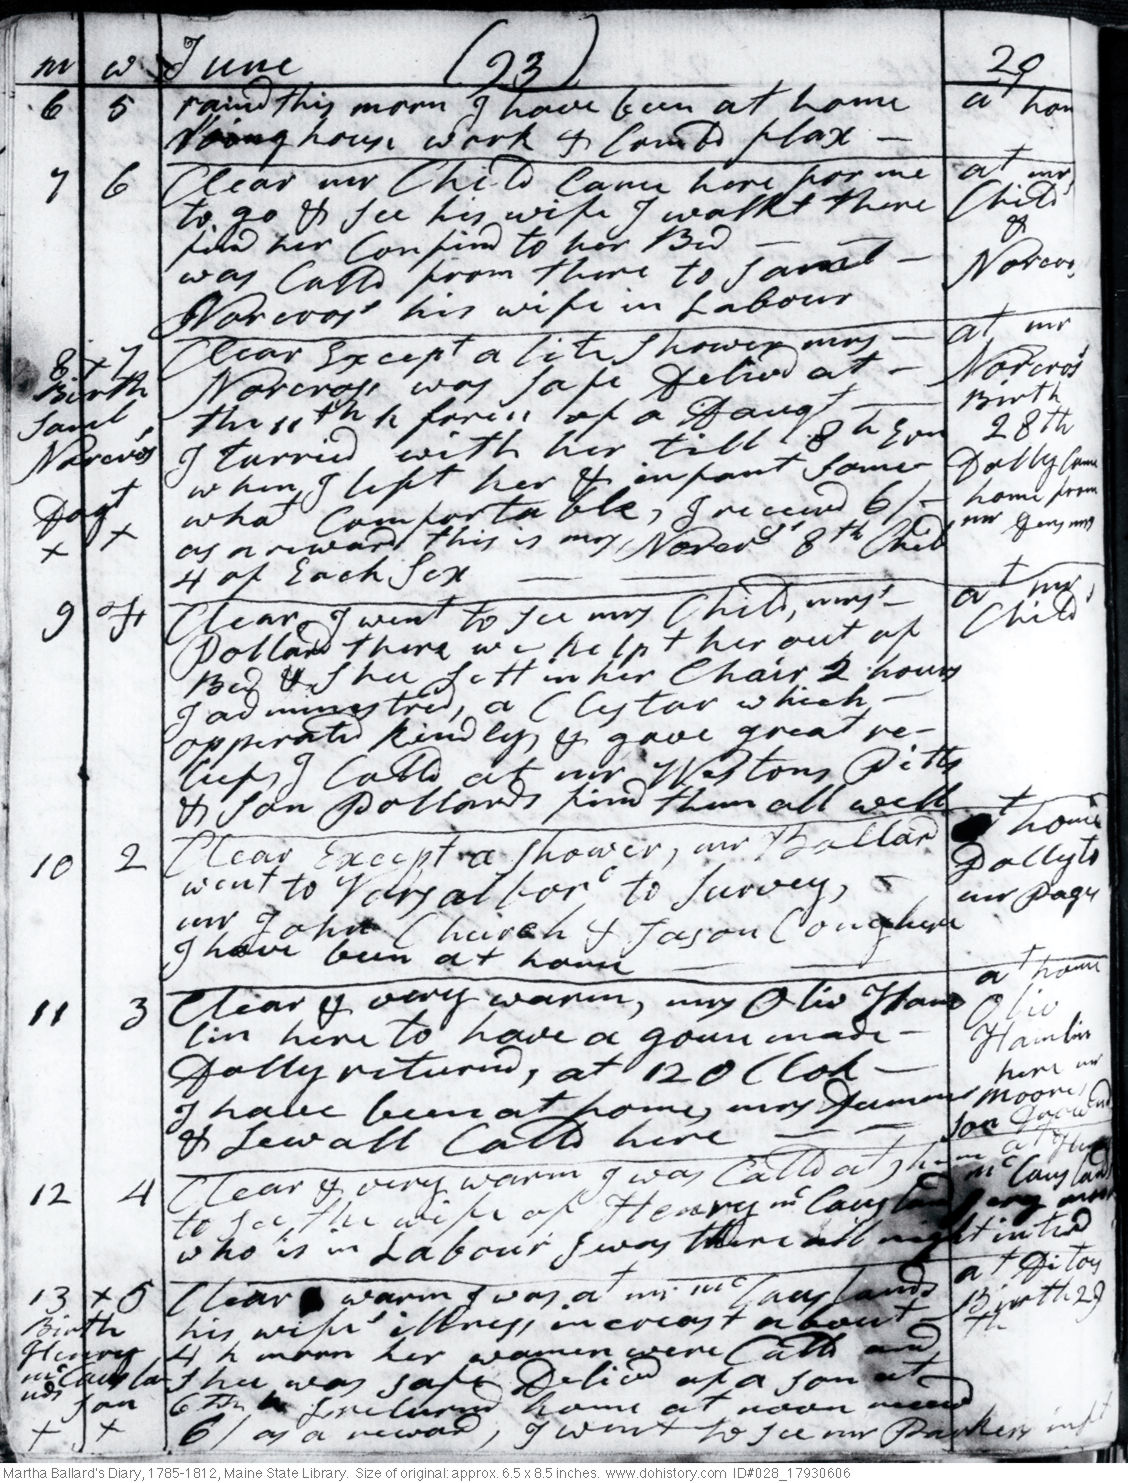 m w June (23) 29
6 5 raind this morn I have been at home at hom
Doing house work & Combd flax —
7 6 Clear mr Child Came here for me at mr
to go & See his wife I walkt there Child
find her Confind to her Bed — — &
was Calld from there to Saml — Norcros
Norcros' his wife in Labour
8 + 7 Clear Except a litle Shower mrs — at mr
Birth Norcross was safe Delivd at — Norcros's
Saml the 11th h foren of a Daugt — Birth
Norcros's I tarried with her till 8 h Evn 28th
when I left her & infant Some Dolly Came
Dagt what Comfortable, I receivd 6/– home from
+ + as a reward this is mrs Norcros's 8th Child mr
4 of Each Sex — — —
9 Clear, I went to See mrs Child, mrs — at mr
Pollard there we helpt her out of Child
Bed & She Sett in her Chair 2 hours
I administred, a Clystar which —
opperated kindly, & gave great re–
lief, I Calld at mr Westons Pitts
& Son Pollards find them all well
10 2 Clear Except a Shower, mr Ballard at home
went to Varsalboro to Survey, — Dolly to
mr John Church & Jason Cough here mr Page
I have been at home — —
11 3 Clear & very warm, mrs Oliv Ham at home
lin here to have a goun made — Oliv
Dolly returnd, at 12 O Clok — Hamlin
I have been at home, mrs here mr
& Sewall Calld here — — Moore,
Son
12 4 Clear & very warm I was Calld at
to See the wife of Henry mc Causland
who is in Labour I was there all night intird
13 + 5 Clear & warm I was at mr mc Causlands at Ditos
Birth his wife's illness increast about — Birth 29
Henry 4 h morn her women were Calld and th
mc Causla She was safe Delivd of a Son at
nds Son 6th h I returnd home at noon receivd
+ + 6/ as a reward, I went to See mr Parkers inft
Martha Ballard's Diary, 1785-1812, Maine State Library. Size of original: approx. 6.5 x 8.5 inches. www.dohistory.com ID#028_17930606